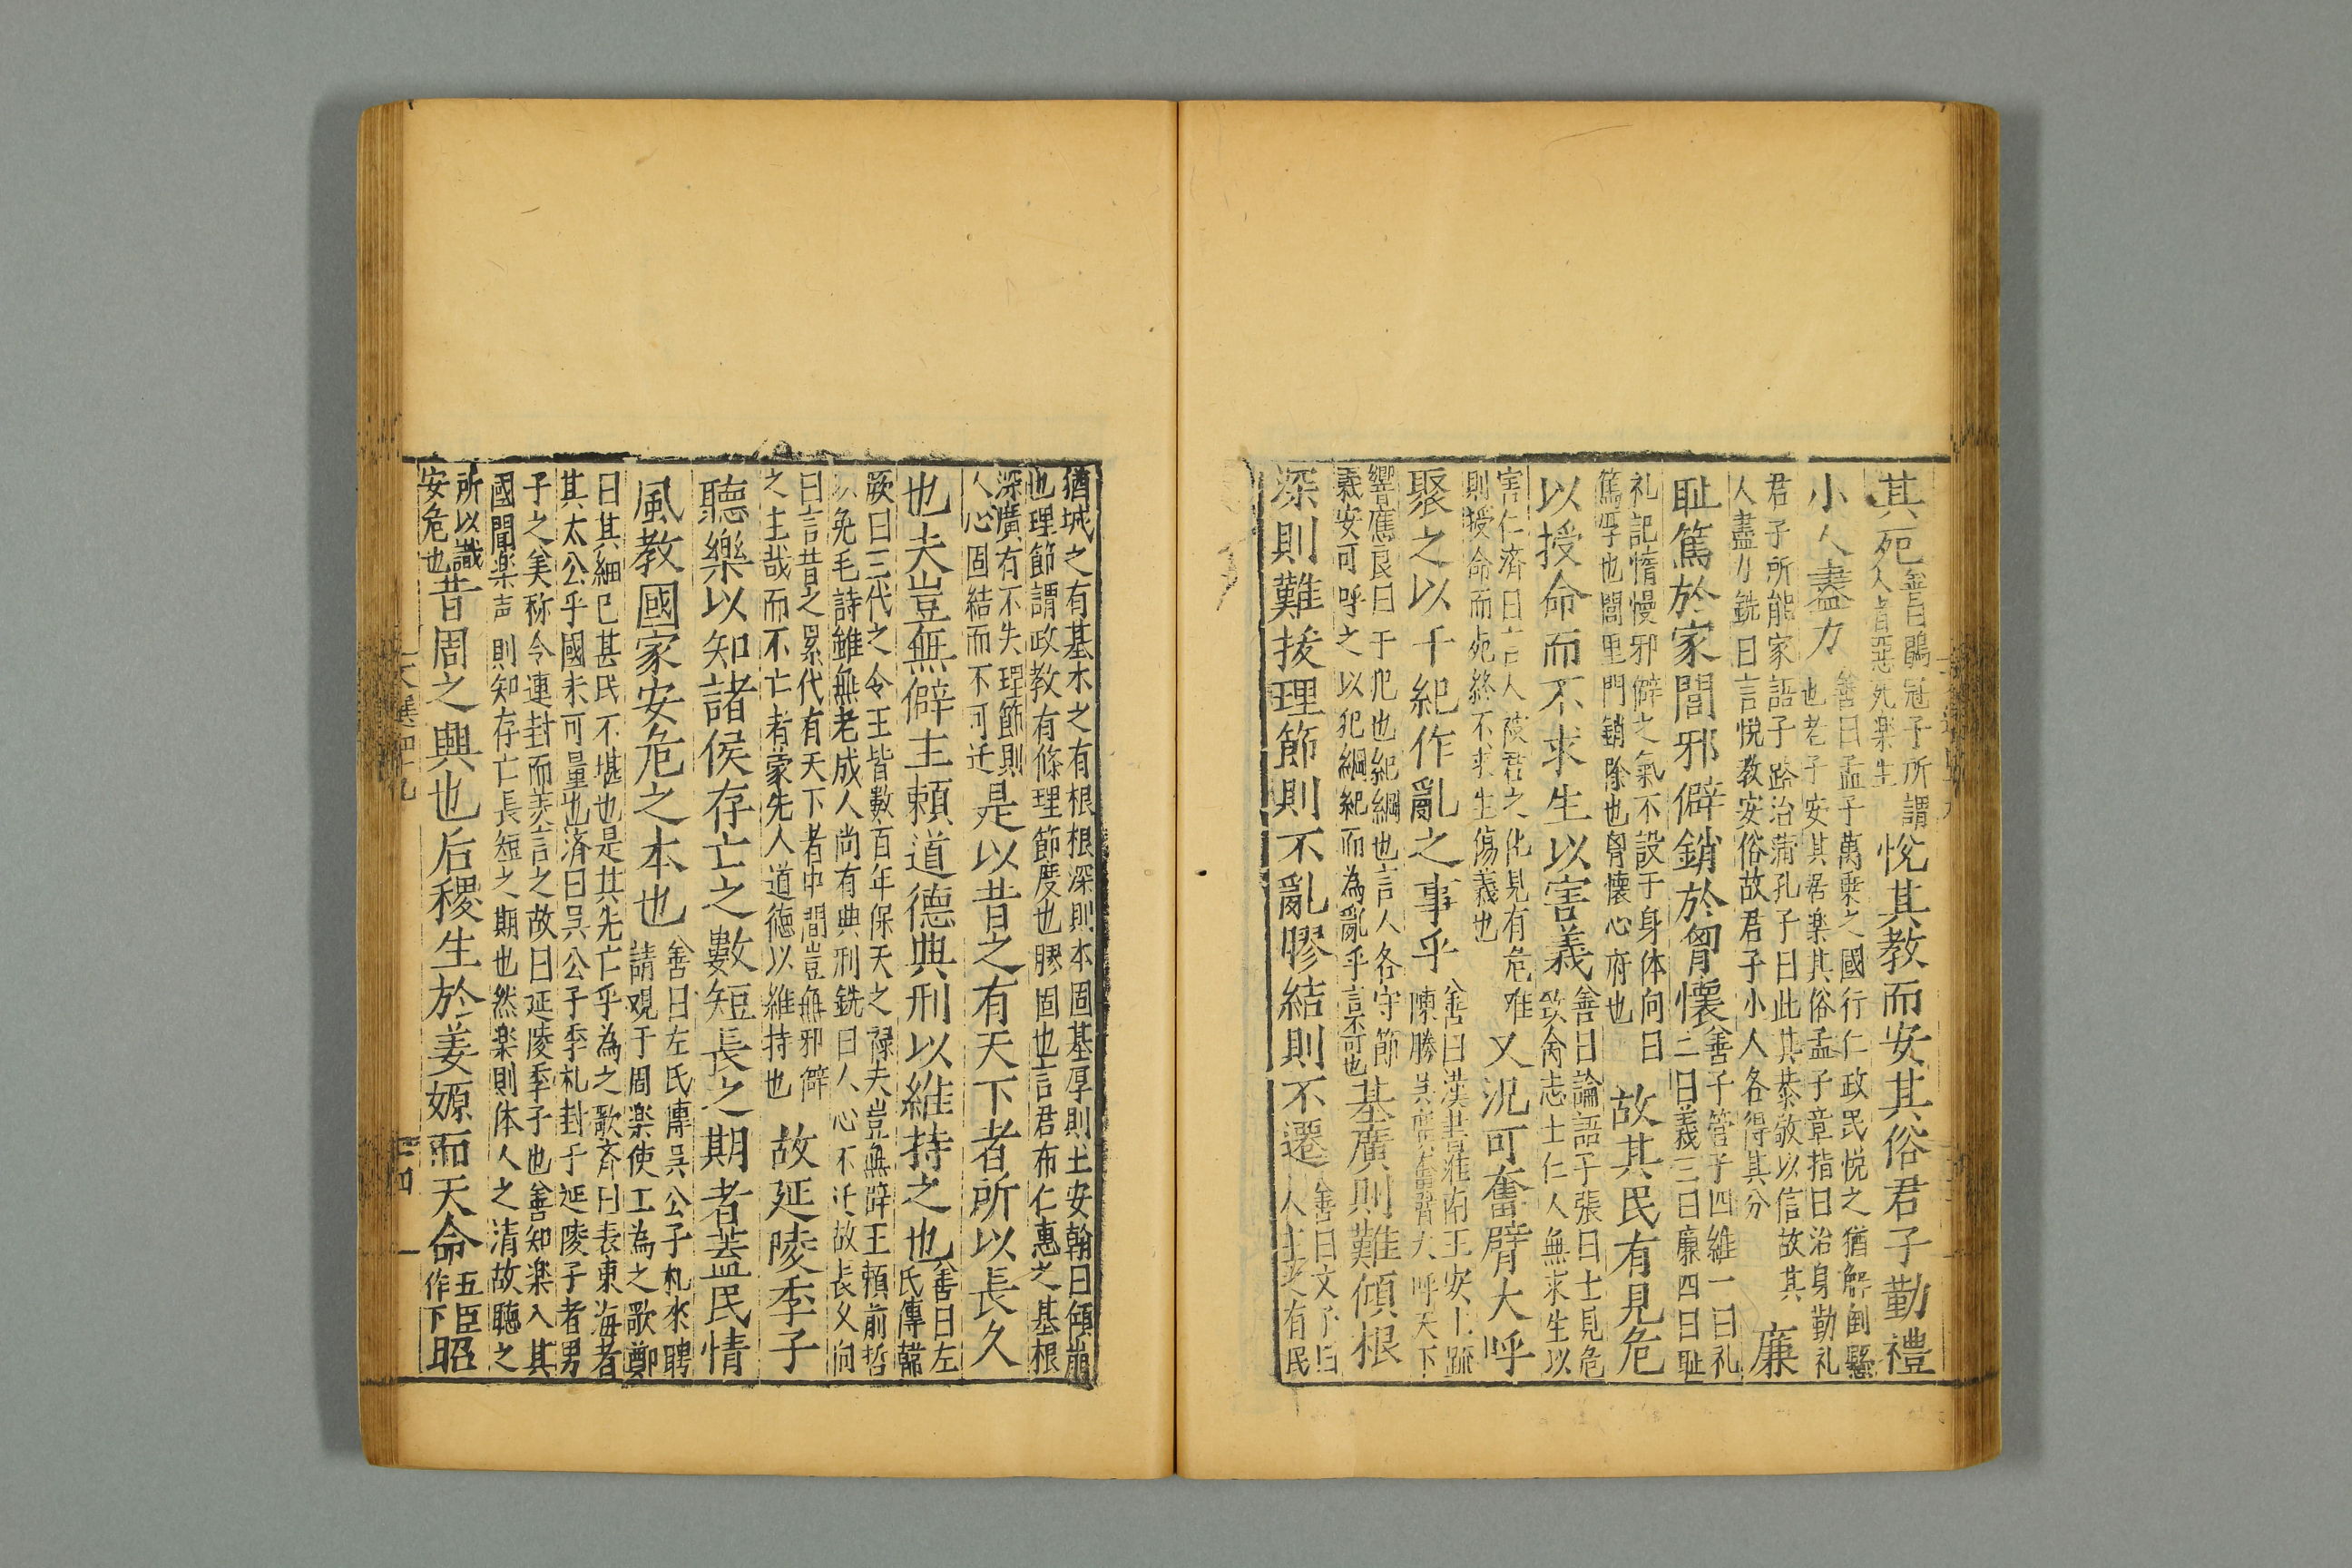 其死善曰鶡冠子所謂人者惡死樂生悅其教而安其俗君子勤禮
小人盡力善曰孟子萬乘之國行仁政民悅之猶解倒懸也老子安其居楽其俗孟子章指曰治身勤礼
君子所能家語子路治蒲孔子曰此其恭敬以信故其人盡力銑曰言悅教安俗故君子小人各得其分廉
耻篤於家閭邪僻銷於胷懷善曰管子四維一曰礼二曰義三曰廉四曰耻
礼記惰慢邪僻之氣不設于身体向曰篤厚也閭里門銷除也胷懷心府也故其民有見危
以授命而不求生以害義善曰論語子張曰士見危致命志士仁人無求生以
害仁済曰言人茂君之化見有危难則授命而死終不求生傷義也又況可奮臂大呼
聚之以干紀作亂之事乎善曰漢書淮南王安上疏陳勝吳廣奮臂大呼天下
響應良曰干犯也紀綱也言人各守節義安可呼之以犯綱紀而為亂乎言不可也基廣則難傾根
深則難拔理節則不亂膠結則不遷善曰文子曰人主之有民
猶城之有基木之有根根深則本固基厚則土安翰曰傾崩也理節謂政教有條理節度也膠固也言君布仁惠之基根
深廣有不失理節則人心固結而不可迁是以昔之有天下者所以長久
也夫豈無僻主賴道德典刑以維持之也善曰左氏傳韓
厥曰三代之令王皆數百年保天之祿夫豈無辟王賴前哲以免毛詩雖無老成人尚有典刑銑曰人心不迁故長久向
曰言昔之累代有天下者中間豈無邪僻之主哉而不亡者蒙先人道德以維持也故延陵季子
聽樂以知諸侯存亡之數短長之期者蓋民情
風教國家安危之本也善曰左氏傳吳公子札來聘請观于周楽使工為之歌鄭
曰其細已甚民不堪也是其先亡乎為之歌齐曰表東海者其太公乎國未可量也済曰吳公子季札封于延陵子者男
子之美称令連封而美言之故曰延陵季子也善知楽入其國聞楽声則知存亡長短之期也然楽則体人之清故聽之
所以識安危也昔周之興也后稷生於姜嫄而天命五臣作下昭
文選四九
廿四